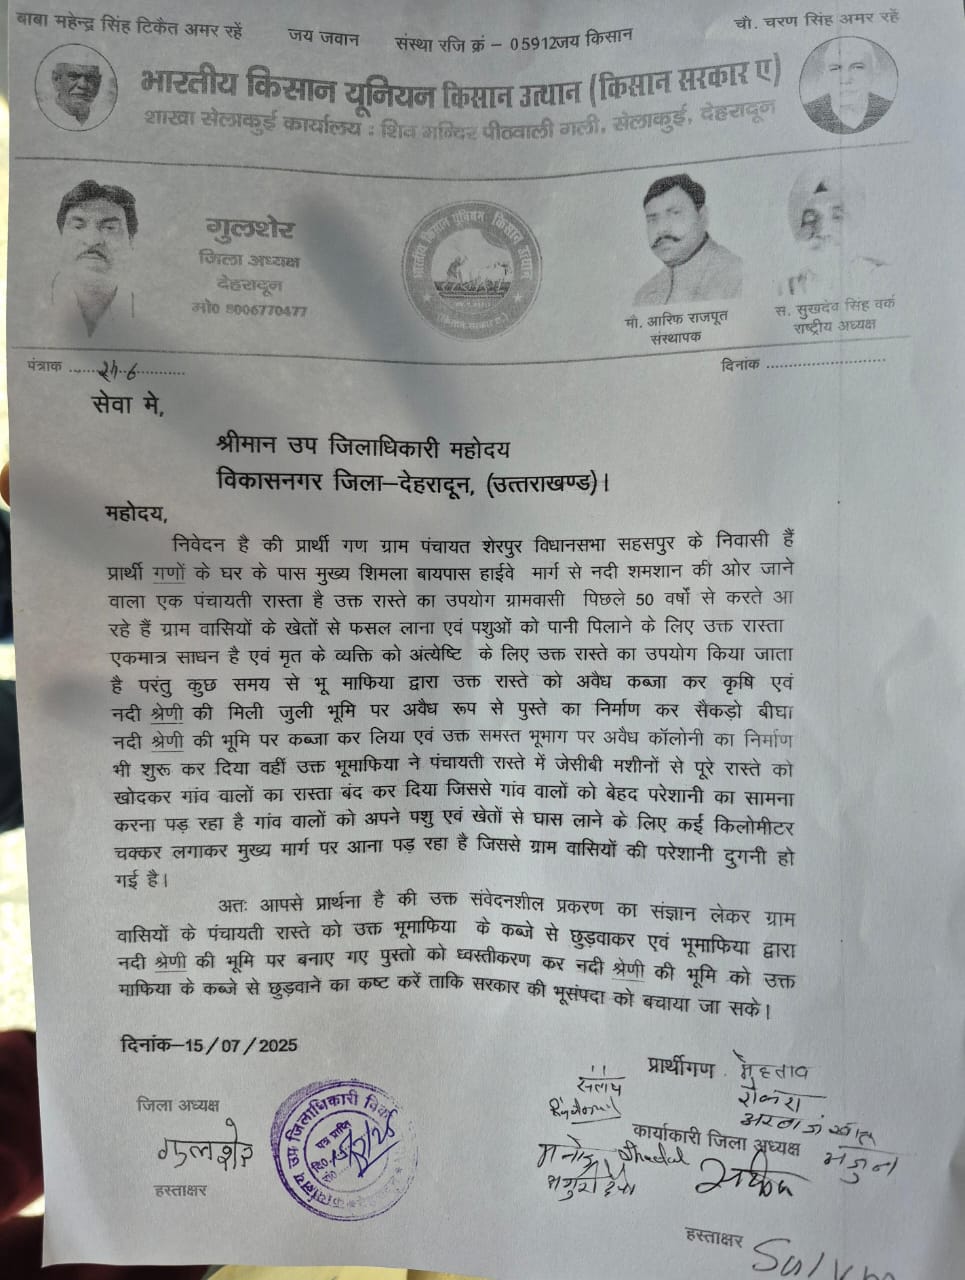 बाबा महेन्द्र सिंह टिकैत अमर रहें जय जवान संस्था रजि क्रं – 05912 जय किसान चौ. चरण सिंह अमर रहें
भारतीय किसान यूनियन किसान उत्थान (किसान सरकार ए)
शाखा सेलाकुई कार्यालय : शिव मन्दिर पीठवाली गली, सेलाकुई, देहरादून
गुलशेर
जिला अध्यक्ष
देहरादून
मो0 8006770477
भारतीय किसान यूनियन किसान उत्थान
(किसान सरकार ए)
मौ. आरिफ राजपूत
संस्थापक
स. सुखदेव सिंह वर्क
राष्ट्रीय अध्यक्ष
पंत्राक ...............
दिनांक ...............
सेवा मे,
श्रीमान उप जिलाधिकारी महोदय
विकासनगर जिला–देहरादून, (उत्तराखण्ड)।
महोदय,
निवेदन है की प्रार्थी गण ग्राम पंचायत शेरपुर विधानसभा सहसपुर के निवासी हैं
प्रार्थी गणों के घर के पास मुख्य शिमला बायपास हाईवे मार्ग से नदी शमशान की ओर जाने
वाला एक पंचायती रास्ता है उक्त रास्ते का उपयोग ग्रामवासी पिछले 50 वर्षो से करते आ
रहे हैं ग्राम वासियों के खेतों से फसल लाना एवं पशुओं को पानी पिलाने के लिए उक्त रास्ता
एकमात्र साधन है एवं मृत के व्यक्ति को अंत्येष्टि के लिए उक्त रास्ते का उपयोग किया जाता
है परंतु कुछ समय से भू माफिया द्वारा उक्त रास्ते को अवैध कब्जा कर कृषि एवं
नदी श्रेणी की मिली जुली भूमि पर अवैध रूप से पुस्ते का निर्माण कर सैकड़ो बीघा
नदी श्रेणी की भूमि पर कब्जा कर लिया एवं उक्त समस्त भूभाग पर अवैध कॉलोनी का निर्माण
भी शुरू कर दिया वहीं उक्त भूमाफिया ने पंचायती रास्ते में जेसीबी मशीनों से पूरे रास्ते को
खोदकर गांव वालों का रास्ता बंद कर दिया जिससे गांव वालों को बेहद परेशानी का सामना
करना पड़ रहा है गांव वालों को अपने पशु एवं खेतों से घास लाने के लिए कई किलोमीटर
चक्कर लगाकर मुख्य मार्ग पर आना पड़ रहा है जिससे ग्राम वासियों की परेशानी दुगनी हो
गई है।
अतः आपसे प्रार्थना है की उक्त संवेदनशील प्रकरण का संज्ञान लेकर ग्राम
वासियों के पंचायती रास्ते को उक्त भूमाफिया के कब्जे से छुड़वाकर एवं भूमाफिया द्वारा
नदी श्रेणी की भूमि पर बनाए गए पुस्तो को ध्वस्तीकरण कर नदी श्रेणी की भूमि को उक्त
माफिया के कब्जे से छुड़वाने का कष्ट करें ताकि सरकार की भूसंपदा को बचाया जा सके।
दिनांक–15/07/2025
प्रार्थीगण मेहताब
जिला अध्यक्ष
कार्यालय उप जिलाधिकारी
पत्र प्राप्ति
कार्याकारी जिला अध्यक्ष
गुलशेर
हस्ताक्षर
हस्ताक्षर